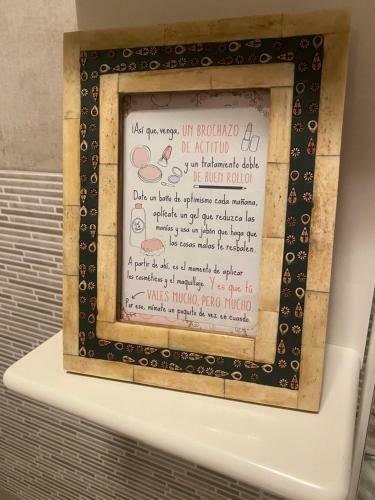 ¡Así que, venga, UN BROCHAZO
DE ACTITUD
y un tratamiento doble
DE BUEN ROLLO!
Date un baño de optimismo cada mañana,
aplícate un gel que reduzca las
manías y usa un jabón que haga que
las cosas malas te resbalen.
A partir de ahí, es el momento de aplicar
los cosméticos y el maquillaje. Y es que tú
VALES MUCHO, PERO MUCHO.
Por eso, mímate un poquito de vez en cuando.